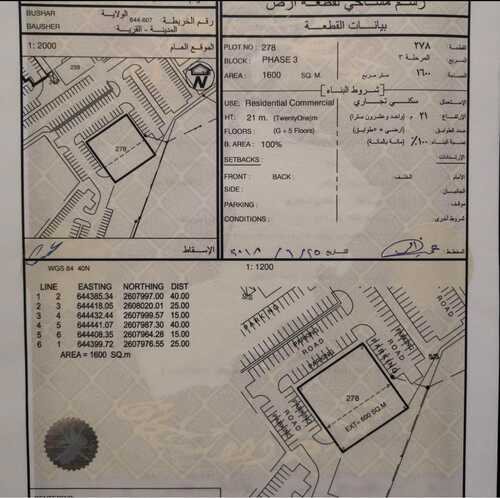 BUSHAR
الولاية
BAUSHER
644-607
رقم الخريطة
المدينة - القرية
1: 2000
الموقع العام
259
278
الإسقاط
رسم مساحي لقطعة أرض
بيانات القطعة
PLOT NO : 278
٢٧٨
القطعة
BLOCK : PHASE 3
المرحلة ٣
المربع
AREA : 1600 SQ. M
متر مربع
١٦٠٠
المساحة
شروط البناء
USE: Residential Commercial
سكني تجاري
الاستعمال
HT: 21 m. (TwentyOne)m
٢١ م (واحد وعشرون مترا)
الإرتفاع
FLOORS : (G + 5 Floors)
(أرضي + ٥ طوابق)
عدد الطوابق
B. AREA : 100%
١٠٠٪ (مائة بالمائة)
نسبة البناء
SETBACKS :
الإرتدادات
FRONT : BACK :
الخلف :
الأمام :
SIDE :
الجانبان
PARKING :
مواقف
CONDITIONS :
شروط أخرى
المخطط :
التاريخ
٢٠١٨ / ٦ / ٢٥
WGS 84 40N
1: 1200
LINE EASTING NORTHING DIST
1 2 644385.34 2607997.00 40.00
2 3 644418.05 2608020.01 25.00
3 4 644432.44 2607999.57 15.00
4 5 644441.07 2607987.30 40.00
5 6 644408.35 2607964.28 15.00
6 1 644399.72 2607976.55 25.00
AREA = 1600 SQ.m
PARKING
ROAD
PARKING
ROAD
PARKING
ROAD
278
EXT= 600 SQ.M